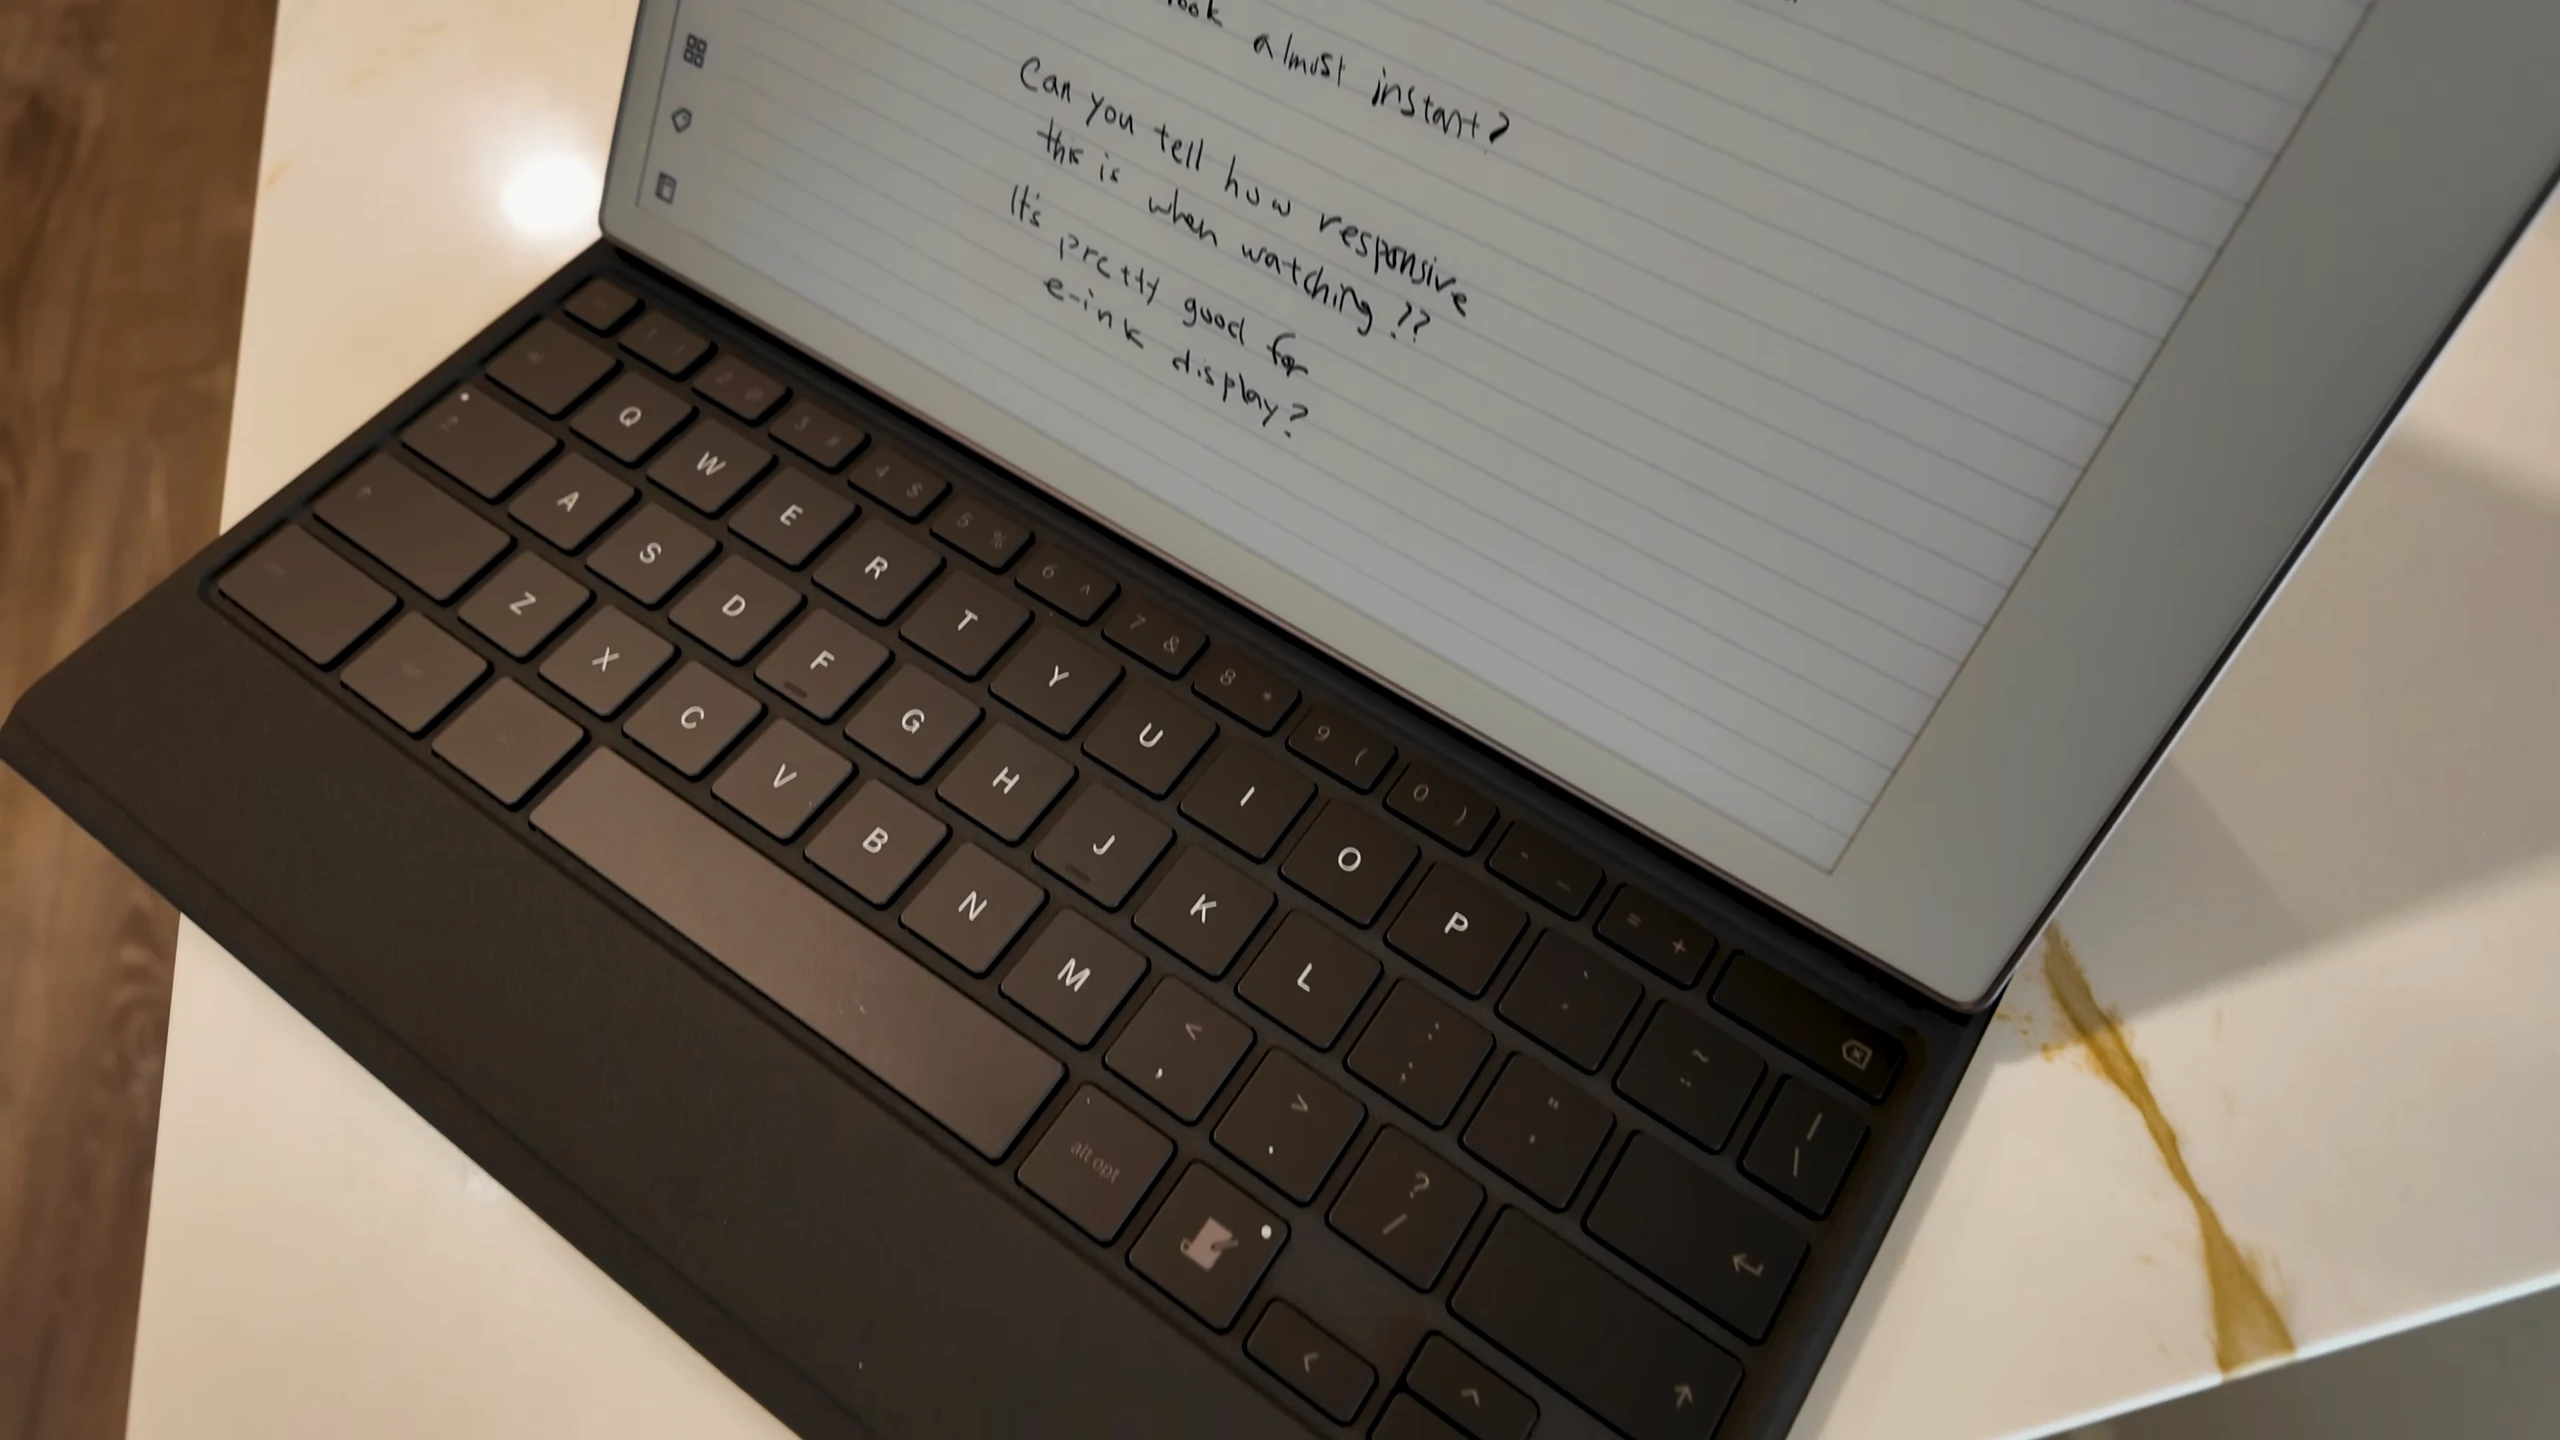 look almost instant?
Can you tell how responsive
this is when watching ??
It's pretty good for
e-ink display?
1 !
2 @
3 #
4 $
5 %
6 ^
7 &
8 *
9 (
0 )
- _
= +
Q W E R T Y U I O P
A S D F G H J K L : ; " '
Z X C V B N M < , > . ? /
~
| \
alt opt